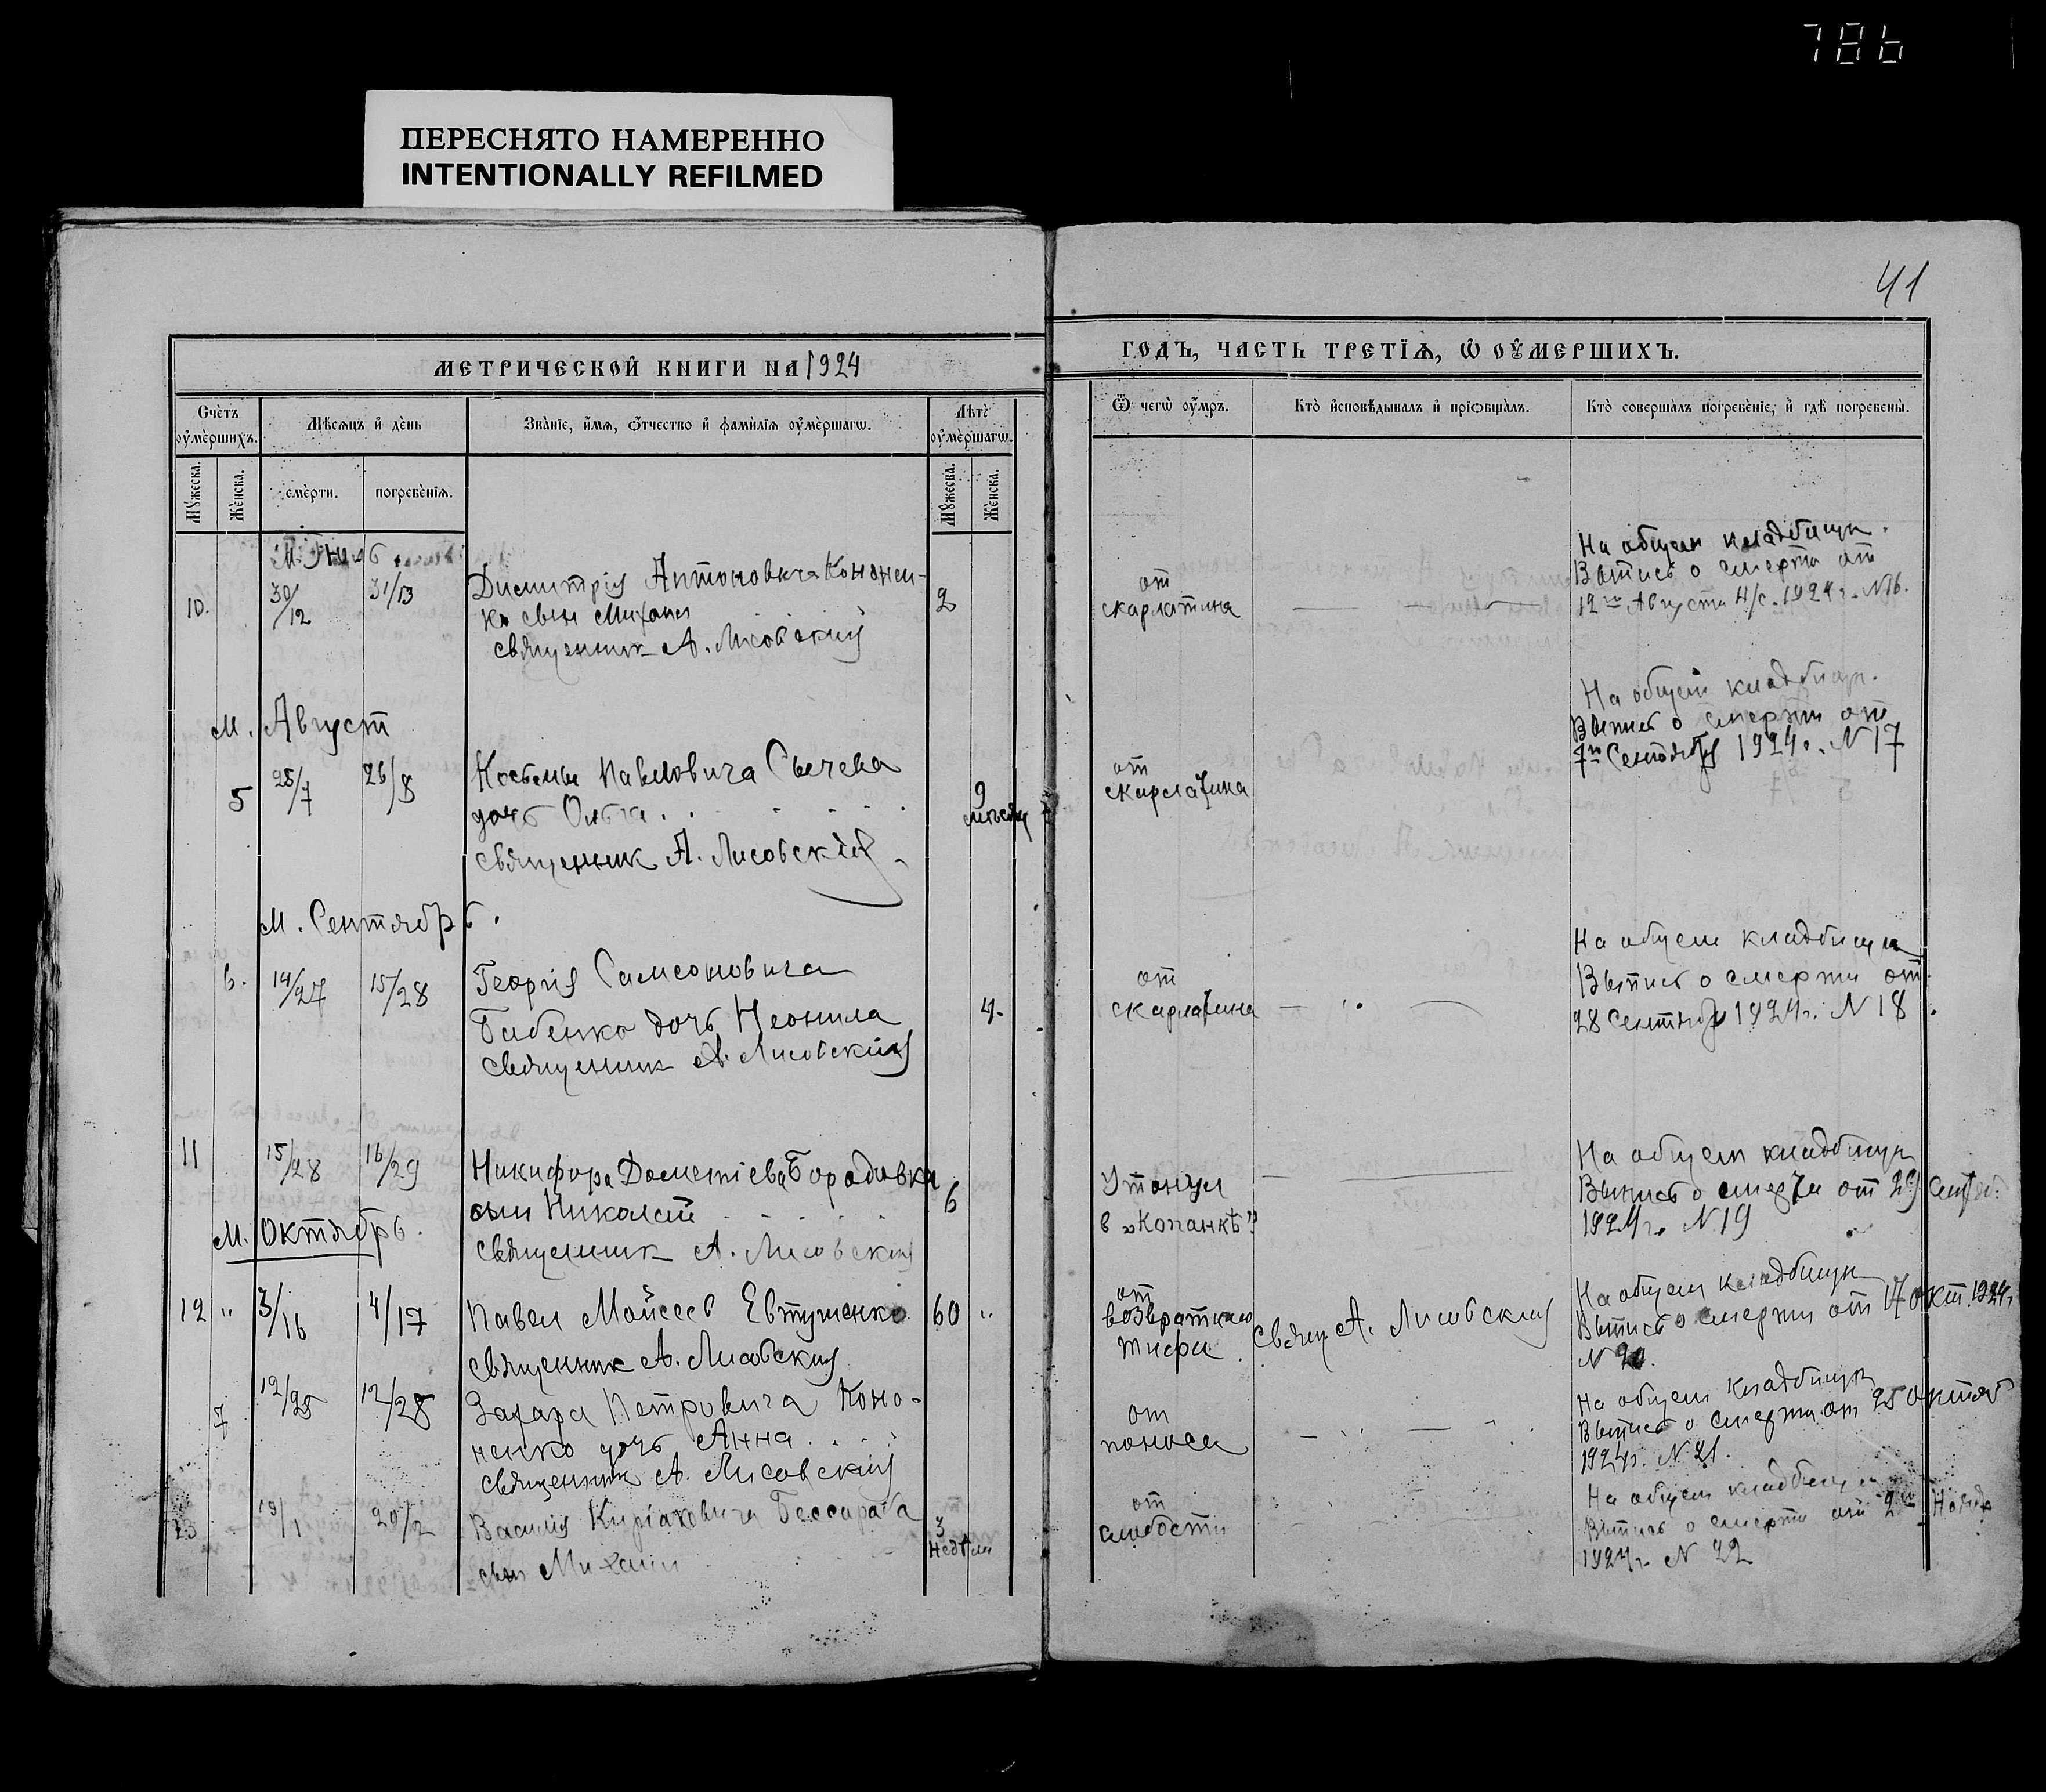 786
ПЕРЕСНЯТО НАМЕРЕННО
INTENTIONALLY REFILMED
41
МЕТРИЧЕСКОЙ КНИГИ НА 1924
ГОДЪ, ЧАСТЬ ТРЕТІѦ, Ѿ ОУМЕРШИХЪ.
Счетъ оумершихъ.
Мѣсяцъ и день
Званіе, имѧ, отчество и фамилїѧ оумершагѡ.
Лѣтъ оумершагѡ.
Ѿ чегѡ оумръ.
Кто исповѣдывалъ и прїѡбщалъ.
Кто совершалъ погребенїе, и гдѣ погребены.
Мужеска.
Женска.
смерти.
погребенїѧ.
Мужеска.
Женска.
10.
30/12
31/13
Димитрія Антоновича Кононен-
ко сын Михаил
священник А. Лисовский
2
от
скарлатина
На общем кладбище.
Выпись о смерти от
12го Августа н/с. 1924 г. N 16.
М. Август
5
25/7
26/8
Косьмы Павловича Сычева
дочь Ольга
священник А. Лисовский
9
месяц
от
скарлатина
На общем кладбище.
Выпись о смерти от
7го Сентября 1924 г. N 17
М. Сентябрь.
6.
14/27
15/28
Георгия Самсоновича
Бабенко дочь Неонила
священник А. Лисовский
4.
от
скарлатина
На общем кладбище
Выпись о смерти от
28 Сентября 1924 г. N 18.
11
15/28
16/29
Никифора Дометіева Бородавка
сын Николай
священник А. Лисовский
6
Утонул
в „Копанкѣ"
На общем кладбище
Выпись о смерти от 29 Сентяб.
1924 г. N 19
М. Октябрь.
12
"
3/16
4/17
Павел Мойсеев Евтушенко
священник А. Лисовский
60
"
от
возвратного
тифа
Свящ. А. Лисовский
На общем кладбище
Выпись о смерти от 17 окт. 1924 г.
N 20.
7
12/25
Захара Петровича Коно-
ненко дочь Анна
священник А. Лисовский
от
поноса
На общем кладбище
Выпись о смерти от 25 октяб
1924 г. N 21.
13
19/1
20/2
Василия Киріаковича Бессараба
сын Михаил
3
недели
от
слабости
На общем кладбище
Выпись о смерти от 2го Нояб
1924 г. N 22